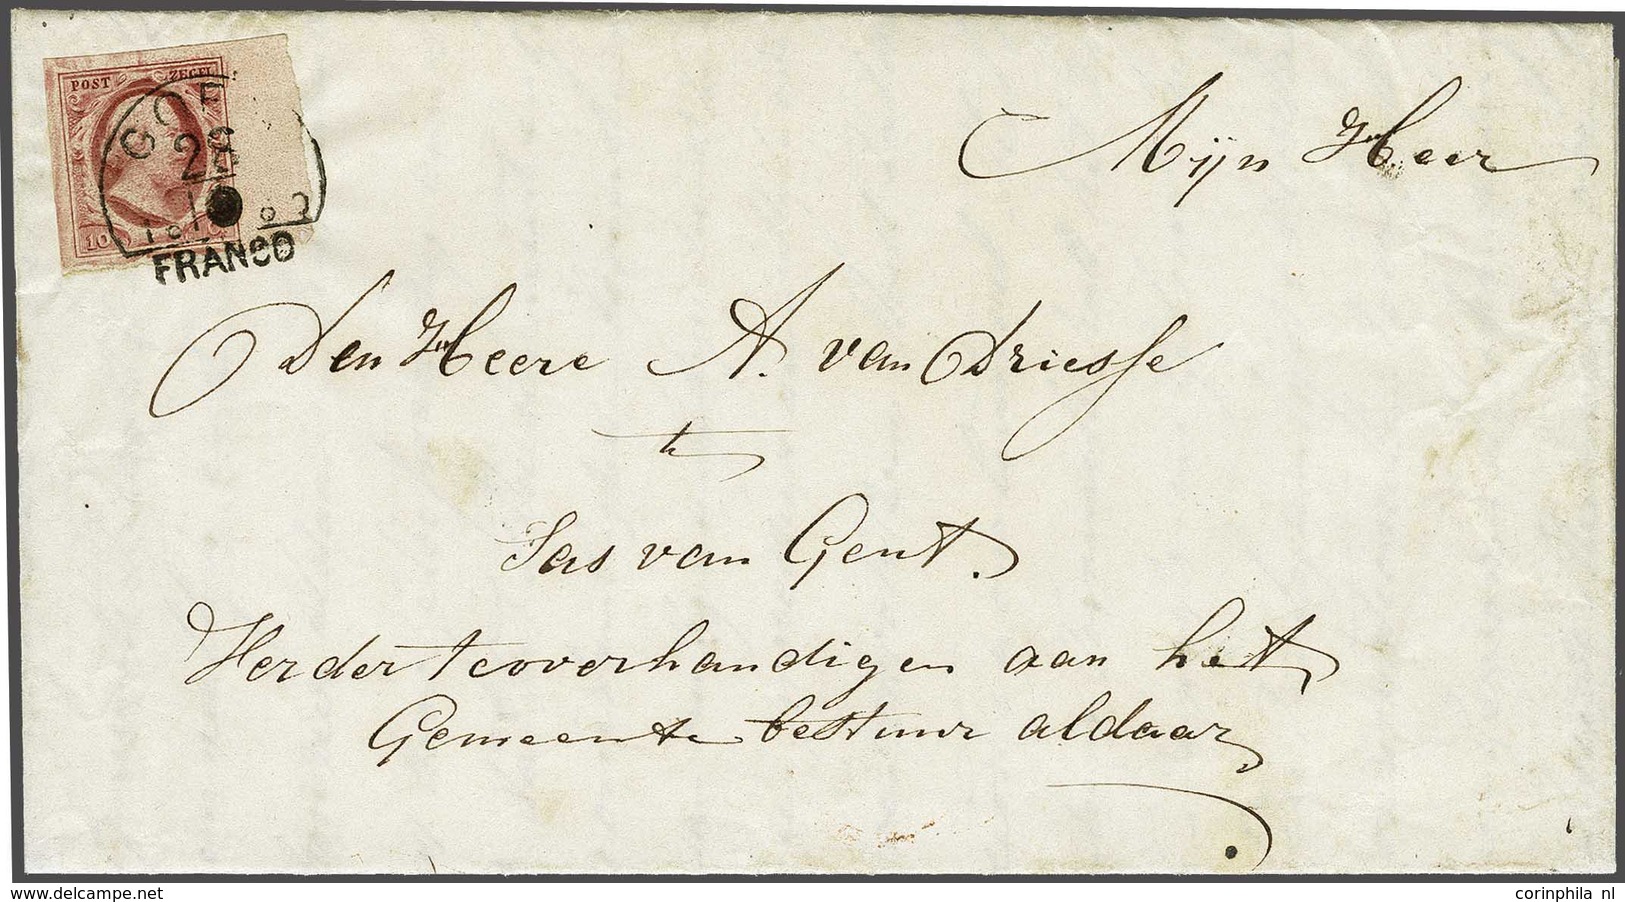 POST ZEGEL
GOE
28
10
FRANCO
Mijn Heer
Den Heere A. van Driesse
te
Sas van Gent.
Verder te overhandigen aan het
Gemeente bestuur aldaar
corinphila nl
www.delcampe.net